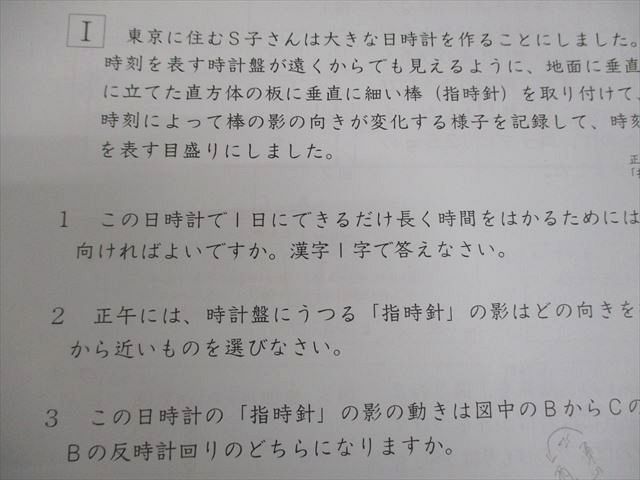 Ⅰ 東京に住むS子さんは大きな日時計を作ることにしました。
時刻を表す時計盤が遠くからでも見えるように、地面に垂直
に立てた直方体の板に垂直に細い棒（指時針）を取り付けて、
時刻によって棒の影の向きが変化する様子を記録して、時刻
を表す目盛りにしました。
正
「指
1 この日時計で1日にできるだけ長く時間をはかるためには
向ければよいですか。漢字1字で答えなさい。
2 正午には、時計盤にうつる「指時針」の影はどの向きを
から近いものを選びなさい。
3 この日時計の「指時針」の影の動きは図中のBからCの
Bの反時計回りのどちらになりますか。